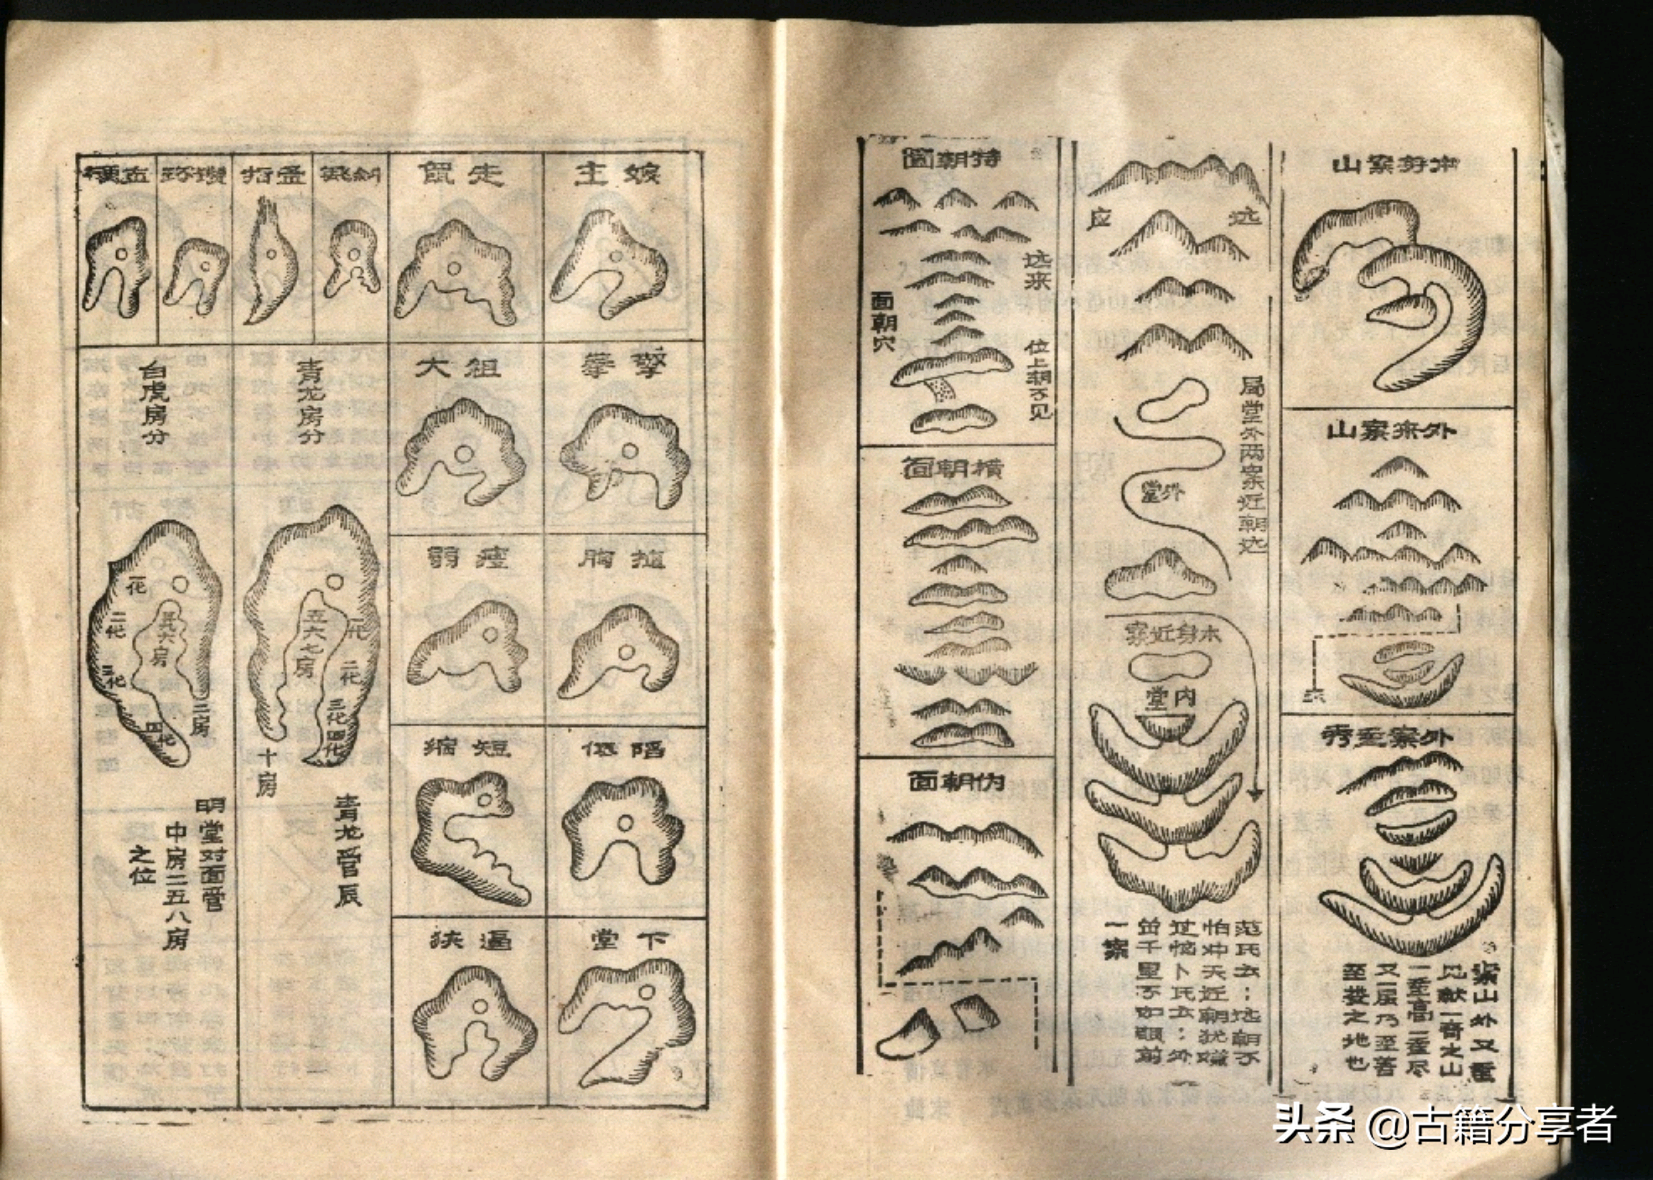 本身案山
外来案山
来
外案重秀
案山外又重
见献一奇之山
一重高一重尽
又一层乃至善
至美之地也
远
应
局堂外两案近朝远
外堂
本身近案
内堂
范氏云：远朝不
怕冲天近朝犹嫌
过恼卜氏云：外
耸千里不如眼前
一案
特朝面
远来
位上朝不见
面朝穴
横朝面
伪朝面
走
主
擎拳
祖大
胸
瘦弱
陷
短缩
下堂
逼狭
斜飛
孟指
青龙房分
一化
二化
三化
四化
五六七房
十房
青龙管辰
白虎房分
一化
二化
三化
四化
五六房
三房
明堂对面管
中房二五八房
之位
头条 @古籍分享者